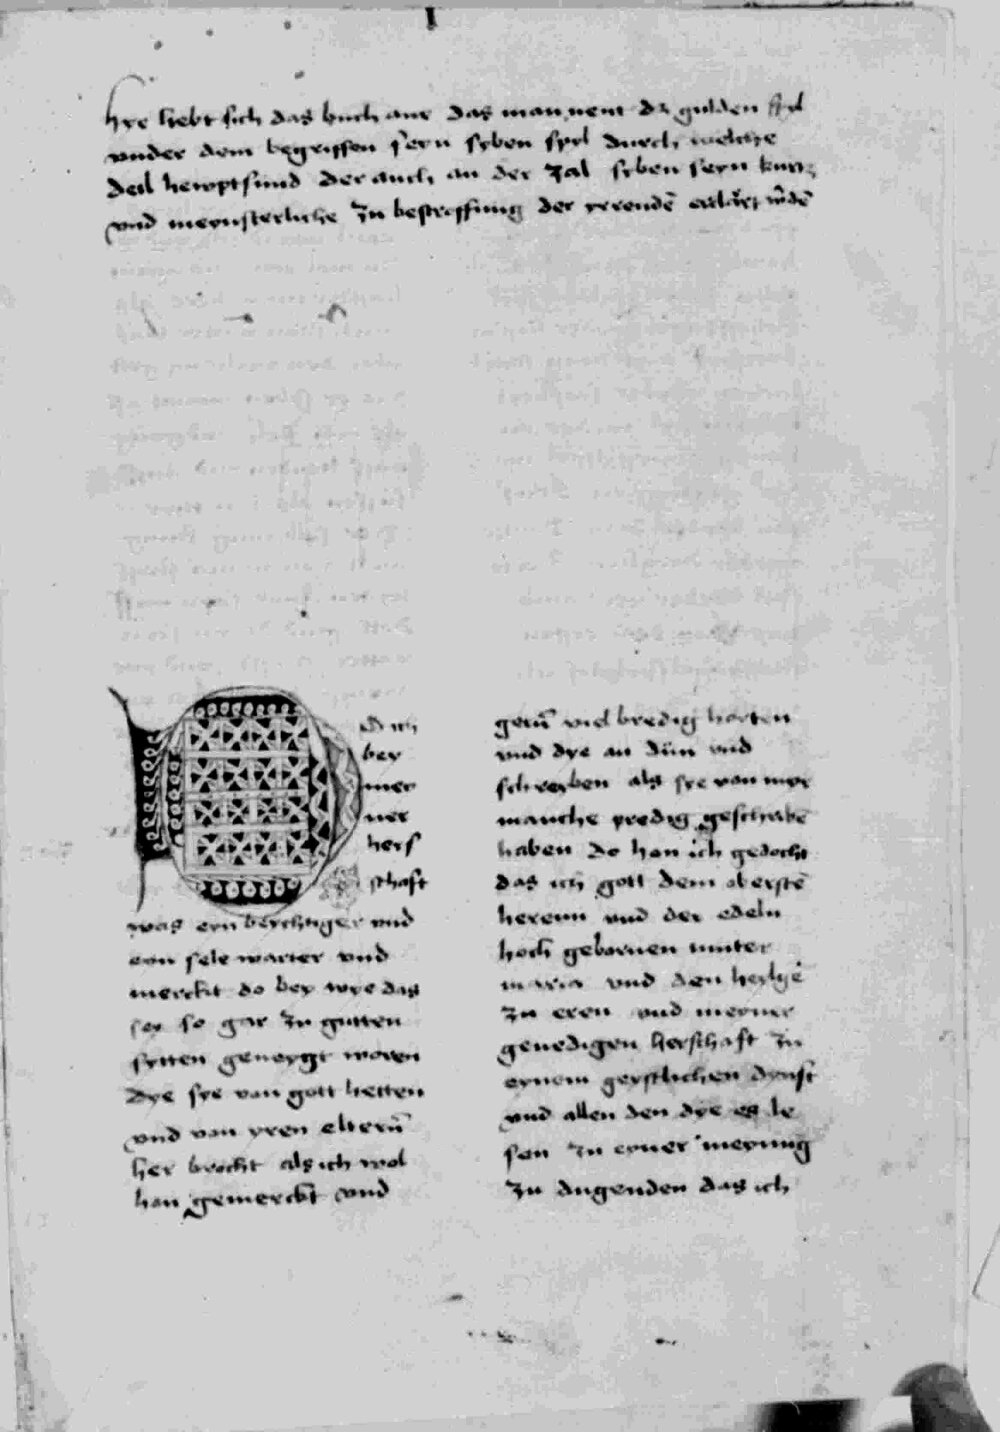 hye hebt sich das buch ane das man nent dz gulden spil
vnder dem begriffen seyn syben spyl durch welche
deil hewptsund der auch an der Zal syben seyn kurtz
vnd meynsterliche zu bestroffung der yrenden̄ erklårt w̄dē
Do ich
bey
mey
ner
hers
schaft
was eyn beychtiger vnd
eyn sele warter vnd
merckt do bey wye das
sey so gar zu gutten
sytten geneygt woren
dye sye van gott hetten
vnd van yren elterñ
her brocht als ich wol
han gemerckt vnd
gerñ viel bredig horten
vnd dye an dün vnd
schreyben als sye van myr
manche predig geschribē
haben do han ich gedocht
das ich gott dem oberstē
herenn vnd der edeln
hoch gebornen muter
maria vnd den heylgē
zu eren vnd meyner
genedigen herschaft zu
eynem geystlichen dynst
vnd allen den dye es le
sen zu eyner meynung
zu dugenden das ich